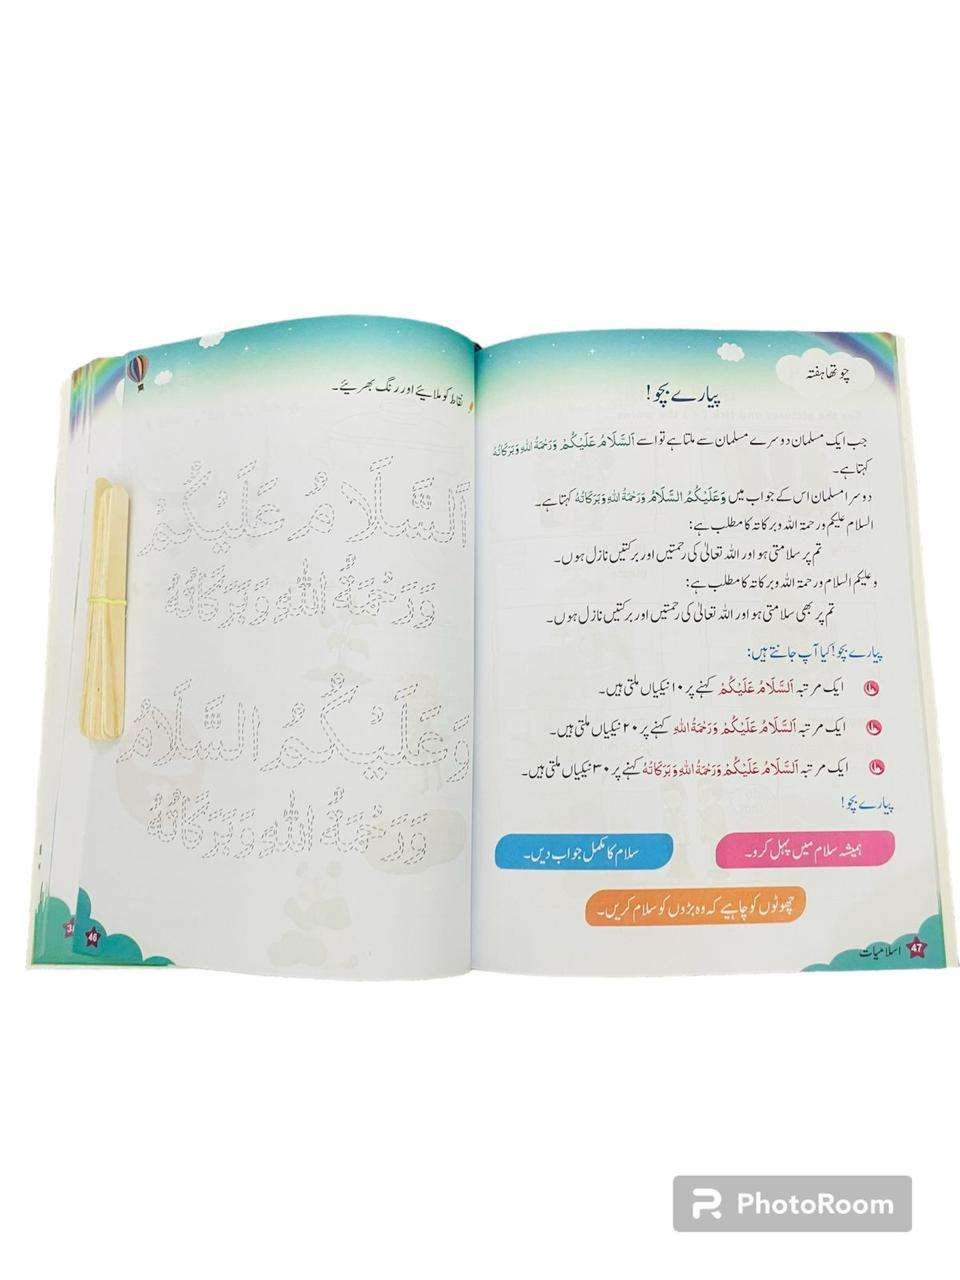 چوتھا ہفتہ
پیارے بچو!
جب ایک مسلمان دوسرے مسلمان سے ملتا ہے تو اسے اَلسَّلَامُ عَلَیْکُمْ وَرَحْمَۃُ اللہِ وَبَرَکَاتُہٗ
کہتا ہے۔
دوسرا مسلمان اس کے جواب میں وَعَلَیْکُمُ السَّلَامُ وَرَحْمَۃُ اللہِ وَبَرَکَاتُہٗ کہتا ہے۔
السلام علیکم ورحمۃ اللہ وبرکاتہ کا مطلب ہے:
تم پر سلامتی ہو اور اللہ تعالیٰ کی رحمتیں اور برکتیں نازل ہوں۔
وعلیکم السلام ورحمۃ اللہ وبرکاتہ کا مطلب ہے:
تم پر بھی سلامتی ہو اور اللہ تعالیٰ کی رحمتیں اور برکتیں نازل ہوں۔
پیارے بچو! کیا آپ جانتے ہیں:
ایک مرتبہ اَلسَّلَامُ عَلَیْکُمْ کہنے پر ۱۰ نیکیاں ملتی ہیں۔
ایک مرتبہ اَلسَّلَامُ عَلَیْکُمْ وَرَحْمَۃُ اللہِ کہنے پر ۲۰ نیکیاں ملتی ہیں۔
ایک مرتبہ اَلسَّلَامُ عَلَیْکُمْ وَرَحْمَۃُ اللہِ وَبَرَکَاتُہٗ کہنے پر ۳۰ نیکیاں ملتی ہیں۔
پیارے بچو!
ہمیشہ سلام میں پہل کرو۔
سلام کا مکمل جواب دیں۔
چھوٹوں کو چاہیے کہ وہ بڑوں کو سلام کریں۔
47 اسلامیات
نقاط کو ملایئے اور رنگ بھریئے۔
اَلسَّلَامُ عَلَیْکُمْ
وَرَحْمَۃُ اللہِ وَبَرَکَاتُہٗ
وَعَلَیْکُمُ السَّلَامُ
وَرَحْمَۃُ اللہِ وَبَرَکَاتُہٗ
46
PhotoRoom